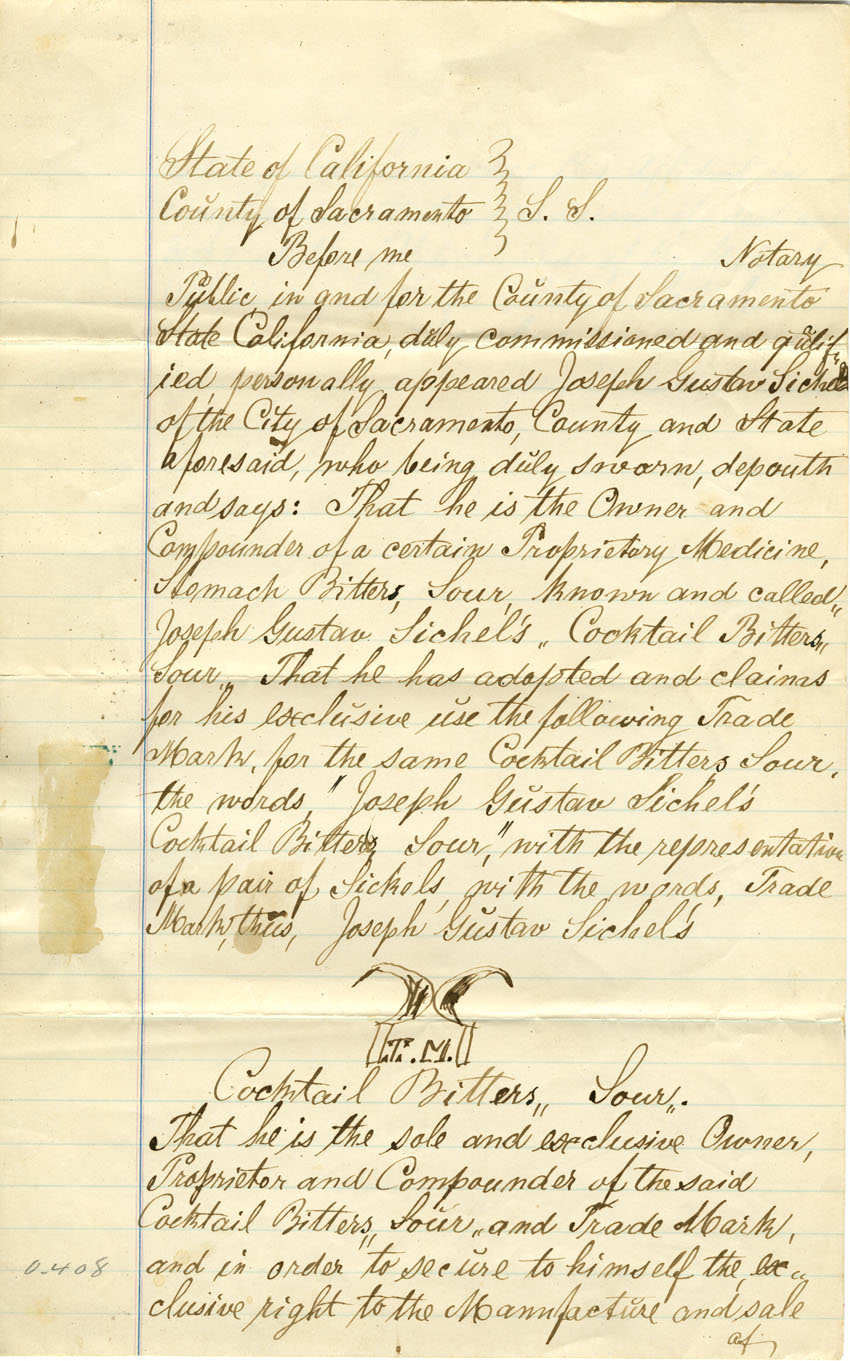 State of California
County of Sacramento } S. S.
Before me Notary
Public in and for the County of Sacramento
State California, duly commissioned and qualif
ied, personally appeared Joseph Gustav Sichel
of the City of Sacramento, County and State
aforesaid, who being duly sworn, depouth
and says: That he is the Owner and
Compounder of a certain Proprietory Medicine,
Stomach Bitters, Sour, known and called „
Joseph Gustav Sichel's „ Cocktail Bitters„
Sour„ That he has adopted and claims
for his exclusive use the following Trade
Mark, for the same Cocktail Bitters Sour,
the words, " Joseph Gustav Sichel's
Cocktail Bitters Sour," with the representation
of a pair of Sickels, with the words, Trade
Mark, thus, Joseph Gustav Sichel's
T. M.
Cocktail Bitters„ Sour„.
That he is the sole and exclusive Owner,
Proprietor and Compounder of the said
Cocktail Bitters„ Sour„ and Trade Mark,
and in order to secure to himself the ex„
clusive right to the Mannfacture and sale
of
0408